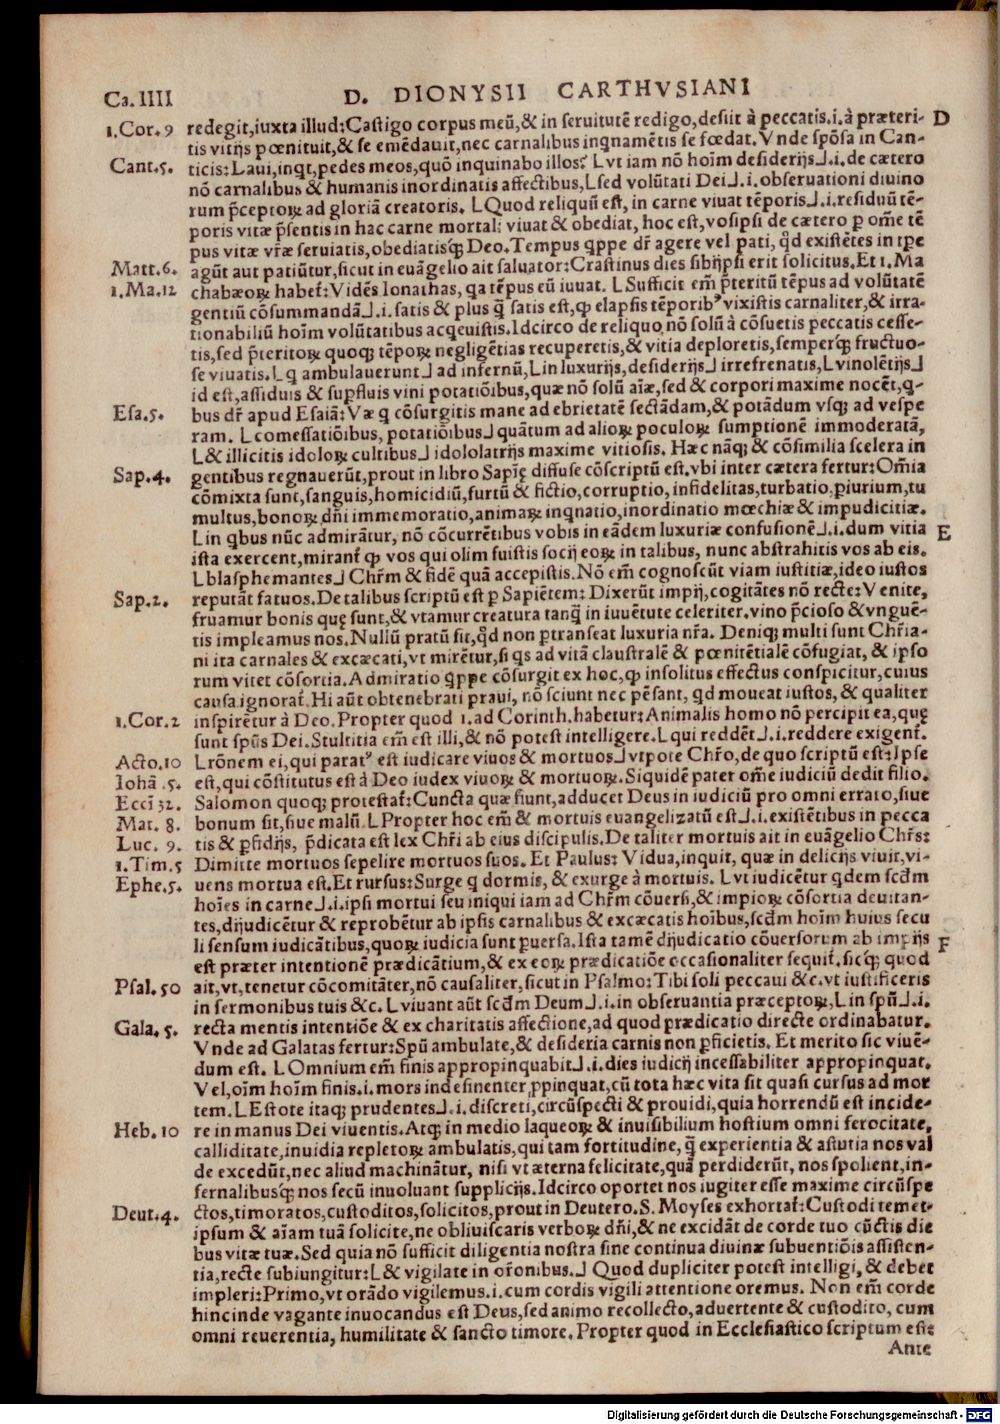 Ca. IIII D. DIONYSII CARTHVSIANI
1. Cor. 9 redegit, iuxta illud: Castigo corpus meũ, & in seruitutẽ redigo, desiit à peccatis .i. à præteri- D
tis vitijs pœnituit, & se emẽdauit, nec carnalibus inqnamẽtis se fœdat. Vnde spõsa in Can-
Cant. 5. ticis: Laui, inqt, pedes meos, quõ inquinabo illos? L vt iam nõ hoĩm desiderijs ⅃ .i. de cætero
nõ carnalibus & humanis inordinatis affectibus, L sed volũtati Dei ⅃ .i. obseruationi diuino
rum p̃ceptoꝝ ad gloriã creatoris. L Quod reliquũ est, in carne viuat tẽporis ⅃ .i. residuũ tẽ-
poris vitæ p̃sentis in hac carne mortali viuat & obediat, hoc est, vosipsi de cætero p om̃e tẽ
pus vitæ vr̃æ seruiatis, obediatisq; Deo. Tempus qppe dr̃ agere vel pati, qd existẽtes in tpe
Matt. 6. agũt aut patiũtur, sicut in euãgelio ait saluator: Crastinus dies sibijpsi erit solicitus. Et 1. Ma
1. Ma. 12 chabæoꝝ habet̃: Vidẽs Ionathas, qa tẽpus eũ iuuat. L Sufficit em̃ p̃teritũ tẽpus ad volũtatẽ
gentiũ cõsummandã ⅃ .i. satis & plus q̃ satis est, qꝫ elapsis tẽporibꝰ vixistis carnaliter, & irra-
tionabiliũ hoĩm volũtatibus acqeuistis. Idcirco de reliquo nõ solũ à cõsuetis peccatis cesse-
tis, sed p̃teritoꝝ quoq; tẽpoꝝ negligẽtias recuperetis, & vitia deploretis, semperq; fructuo-
se viuatis. L q ambulauerunt ⅃ ad infernũ, L in luxurijs, desiderijs ⅃ irrefrenatis, L vinolẽtijs ⅃
id est, assiduis & supfluis vini potatiõibus, quæ nõ solũ aĩæ, sed & corpori maxime nocẽt, q-
Esa. 5. bus dr̃ apud Esaiã: Væ q cõsurgitis mane ad ebrietatẽ sectãdam, & potãdum vsq; ad vespe
ram. L comessatiõibus, potatiõibus ⅃ quãtum ad alioꝝ poculoꝝ sumptionẽ immoderatã,
L & illicitis idoloꝝ cultibus ⅃ idololatrijs maxime vitiosis. Hæc nãq; & cõsimilia scelera in
Sap. 4. gentibus regnauerũt, prout in libro Sapĩę diffuse cõscriptũ est. vbi inter cætera fertur: Om̃ia
cõmixta sunt, sanguis, homicidiũ, furtũ & fictio, corruptio, infidelitas, turbatio, piurium, tu
multus, bonoꝝ dñi immemoratio, animaꝝ inqnatio, inordinatio mœchiæ & impudicitiæ.
L in qbus nũc admirãtur, nõ cõcurrẽtibus vobis in eãdem luxuriæ confusionẽ ⅃ .i. dum vitia E
ista exercent, mirant̃ qꝫ vos qui olim fuistis socij eoꝝ in talibus, nunc abstrahitis vos ab eis.
L blasphemantes ⅃ Chr̃m & fidẽ quã accepistis. Nõ em̃ cognoscũt viam iustitiæ, ideo iustos
Sap. 2. reputãt fatuos. De talibus scriptũ est p Sapiẽtem: Dixerũt impij, cogitãtes nõ recte: Venite,
fruamur bonis quę sunt, & vtamur creatura tanq̃ in iuuẽtute celeriter. vino p̃cioso & vnguẽ-
tis impleamus nos. Nullũ pratũ sit, qd non ptranseat luxuria nr̃a. Deniq; multi sunt Chr̃ia-
ni ita carnales & excæcati, vt mirẽtur, si qs ad vitã claustralẽ & pœnitẽtialẽ cõfugiat, & ipso
rum vitet cõsortia. Admiratio qppe cõsurgit ex hoc, qꝫ insolitus effectus conspicitur, cuius
causa ignorat̃. Hi aũt obtenebrati praui, nõ sciunt nec pẽsant, qd moueat iustos, & qualiter
1. Cor. 2 inspirẽtur à Deo. Propter quod 1. ad Corinth. habetur: Animalis homo nõ percipit ea, quę
sunt spũs Dei. Stultitia em̃ est illi, & nõ potest intelligere. L qui reddẽt ⅃ .i. reddere exigent̃.
Acto. 10 L rõnem ei, qui paratꝰ est iudicare viuos & mortuos ⅃ vtpote Chr̃o, de quo scriptũ est: Ipse
Iohã. 5. est, qui cõstitutus est à Deo iudex viuoꝝ & mortuoꝝ. Siquidẽ pater om̃e iudiciũ dedit filio.
Eccĩ 32. Salomon quoq; protestat̃: Cuncta quæ fiunt, adducet Deus in iudiciũ pro omni errato, siue
Mat. 8. bonum sit, siue malũ. L Propter hoc em̃ & mortuis euangelizatũ est ⅃ .i. existẽtibus in pecca
Luc. 9. tis & pfidijs, p̃dicata est lex Chr̃i ab eius discipulis. De taliter mortuis ait in euãgelio Chr̃s:
1. Tim. 5 Dimitte mortuos sepelire mortuos suos. Et Paulus: Vidua, inquit, quæ in delicijs viuit, vi-
Ephe. 5. uens mortua est. Et rursus: Surge q dormis, & exurge à mortuis. L vt iudicẽtur qdem scd̃m
hoĩes in carne ⅃ .i. ipsi mortui seu iniqui iam ad Chr̃m cõuersi, & impioꝝ cõsortia deuitan-
tes, dijudicẽtur & reprobẽtur ab ipsis carnalibus & excæcatis hoĩbus, scd̃m hoĩm huius secu
li sensum iudicãtibus, quoꝝ iudicia sunt puersa. Ista tamẽ dijudicatio cõuersorum ab impijs F
est præter intentionẽ prædicãtium, & ex eoꝝ prædicatiõe occasionaliter sequit̃. sicq; quod
Psal. 50 ait, vt, tenetur cõcomitãter, nõ causaliter, sicut in Psalmo: Tibi soli peccaui &c. vt iustificeris
in sermonibus tuis &c. L viuant aũt scd̃m Deum ⅃ .i. in obseruantia præceptoꝝ, L in spũ ⅃ .i.
Gala. 5. recta mentis intentiõe & ex charitatis affectione, ad quod prædicatio directe ordinabatur.
Vnde ad Galatas fertur: Spũ ambulate, & desideria carnis non pficietis. Et merito sic viuẽ-
dum est. L Omnium em̃ finis appropinquabit ⅃ .i. dies iudicij incessabiliter appropinquat.
Vel, oĩm hoĩm finis .i. mors indesinenter ppinquat, cũ tota hæc vita sit quasi cursus ad mor
tem. L Estote itaq; prudentes ⅃ .i. discreti, circũspecti & prouidi, quia horrendũ est incide-
Heb. 10 re in manus Dei viuentis. Atq; in medio laqueoꝝ & inuisibilium hostium omni ferocitate,
calliditate, inuidia repletoꝝ ambulatis, qui tam fortitudine, q̃ experientia & astutia nos val
de excedũt, nec aliud machinãtur, nisi vt æterna felicitate, quã perdiderũt, nos spolient, in-
fernalibusq; nos secũ inuoluant supplicijs. Idcirco oportet nos iugiter esse maxime circũspe
Deut. 4. ctos, timoratos, custoditos, solicitos, prout in Deutero. S. Moyses exhortat̃: Custodi temet-
ipsum & aĩam tuã solicite, ne obliuiscaris verboꝝ dñi, & ne excidãt de corde tuo cũctis die
bus vitæ tuæ. Sed quia nõ sufficit diligentia nostra sine continua diuinæ subuentiõis assisten-
tia, recte subiungitur: L & vigilate in or̃onibus. ⅃ Quod dupliciter potest intelligi, & debet
impleri: Primo, vt orãdo vigilemus .i. cum cordis vigili attentione oremus. Non em̃ corde
hincinde vagante inuocandus est Deus, sed animo recollecto, aduertente & custodito, cum
omni reuerentia, humilitate & sancto timore. Propter quod in Ecclesiastico scriptum est:
Ante
Digitalisierung gefördert durch die Deutsche Forschungsgemeinschaft - DFG